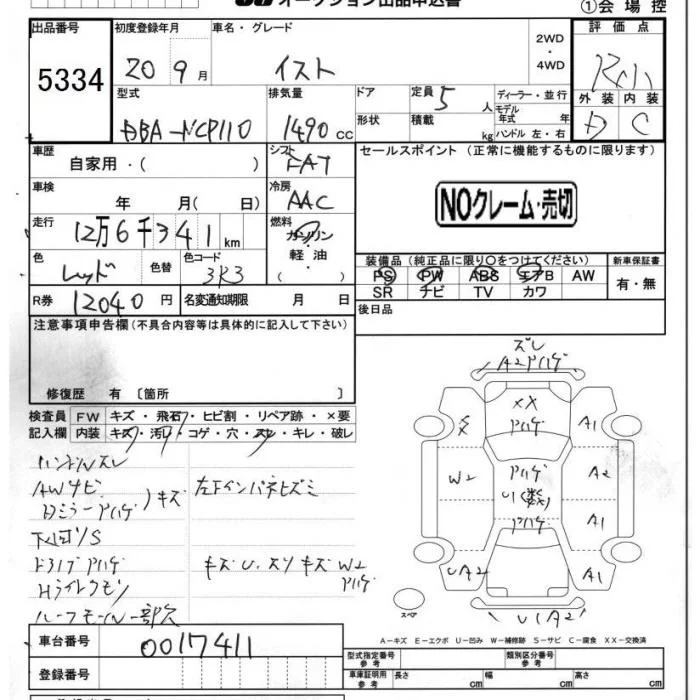 オークション出品申込書
①会場控
出品番号
5334
初度登録年月
20 9月
車名・グレード
イスト
2WD
・
4WD
評価点
R小
外装 内装
D C
型式
DBA-NCP110
排気量
1490 CC
ドア
形状
定員 5 人
積載 kg
ディーラー・並行
モデル
年式 年
ハンドル 左・右
車歴
自家用・( )
シフト
FAT
セールスポイント (正常に機能するものに限ります)
車検
年 月( 日)
冷房
AAC
NOクレーム・売切
走行
12万6千341km
燃料
ガソリン
軽油
( )
色
レッド
色替
色コード
3R3
装備品(純正品に限り○をつけてください)
PS PW ABS エアB AW
SR ナビ TV カワ
新車保証書
有・無
R券
12040円
名変通知期限 月 日
後日品
注意事項申告欄(不具合内容等は具体的に記入して下さい)
修復歴 有 〔箇所 〕
検査員
記入欄
FW キズ・飛石・ヒビ割・リペア跡・×要
内装 キズ・汚レ・コゲ・穴・スレ・キレ・破レ
ハンドルスレ
AWサビ
Dミラーアハゲ
キズ
左下インパネヒズミ
下回リS
ドアノブアハゲ
キズU、スリキズW2
アハゲ
Hライトクモリ
ルーフモール一部欠
ズレ
A2アハゲ
XX
アハゲ
A1
W2
アハゲ
U(数)
アハゲ
A2
A1
UA2
A1
U(A2
スペア
A-キズ E-エクボ U-凹み W-補修跡 S-サビ C-腐食 XX-交換済
車台番号
0017411
登録番号
型式指定番号
参考
類別区分番号
参考
車庫証明用
参考
長さ cm
幅 cm
高さ cm